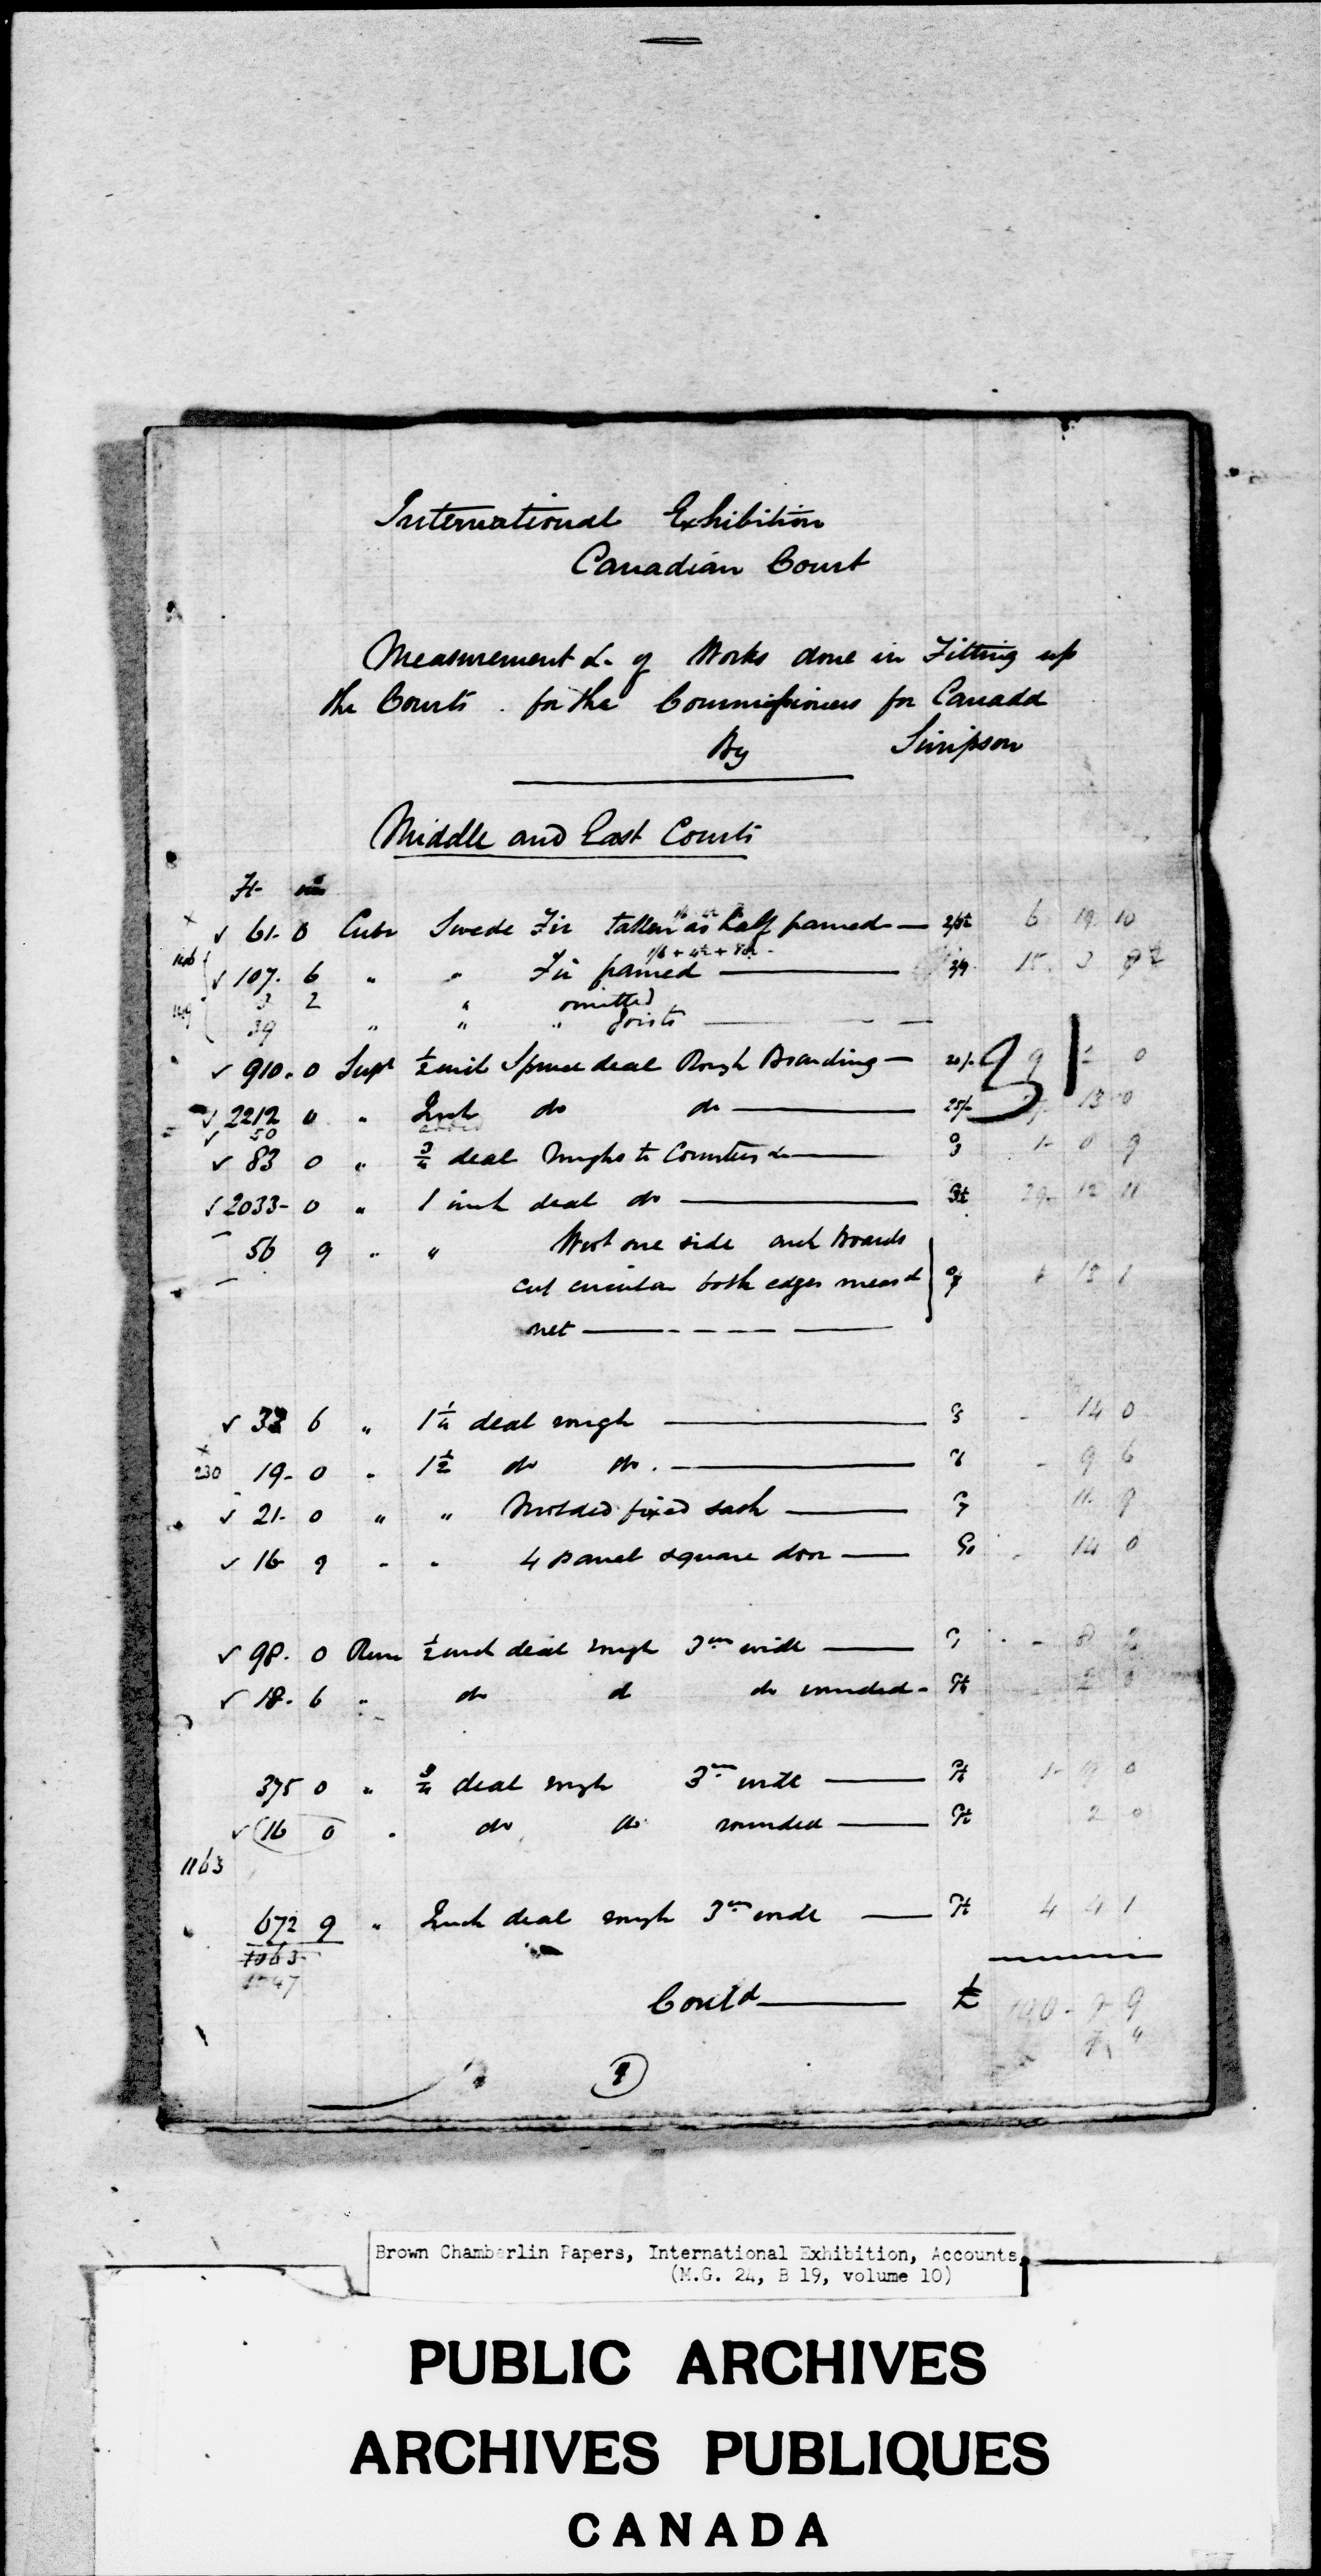 International Exhibition
Canadian Court
Measurement &c of Works done in Fitting up
the Courts for the Commissioners for Canada
By Simpson
Middle and East Courts
Ft in
✓ 61- 0 Cube Swede Fir taken as half framed —
1/6 + 4½ +
✓ 107. 6 " " Fir framed — 2/9 15. 3
3 2 " omitted
39 " " " Joists —
✓ 910. 0 Supl ½ inch Spruce deal Rough Boarding — 20/- 9 2 0
✓ 2212 0 " Inch do do — 25/- 13 0
✓ 50 added
✓ 83 0 " ¾ deal roughs to Counters &c — 3 1- 0 9
✓ 2033- 0 " 1 inch deal do — 3½ 29- 12 11
56 9 " " Wrot one side and boards
cut circular both edges measd
net —
✓ 33 6 " 1¼ deal rough — 5 - 14 0
230 19- 0 " 1½ do do. — 6 - 9 6
✓ 21- 0 " " Molded fixed sash — 7
✓ 16 9 " " 4 panel square door — 10 - 14 0
✓ 98. 0 Run ½ inch deal rough 3in wide — 1 - 8 2
✓ 18. 6 " do d do rounded -
375 0 " ¾ deal rough 3in wide —
✓ 16 0 " do do rounded — 2 0
1163
672 9 " Inch deal rough 3in wide — 4 4 1
1063
1047
Contd — £ 100 - 9
1
Brown Chamberlin Papers, International Exhibition, Accounts
(M.G. 24, B 19, volume 10)
PUBLIC ARCHIVES
ARCHIVES PUBLIQUES
CANADA